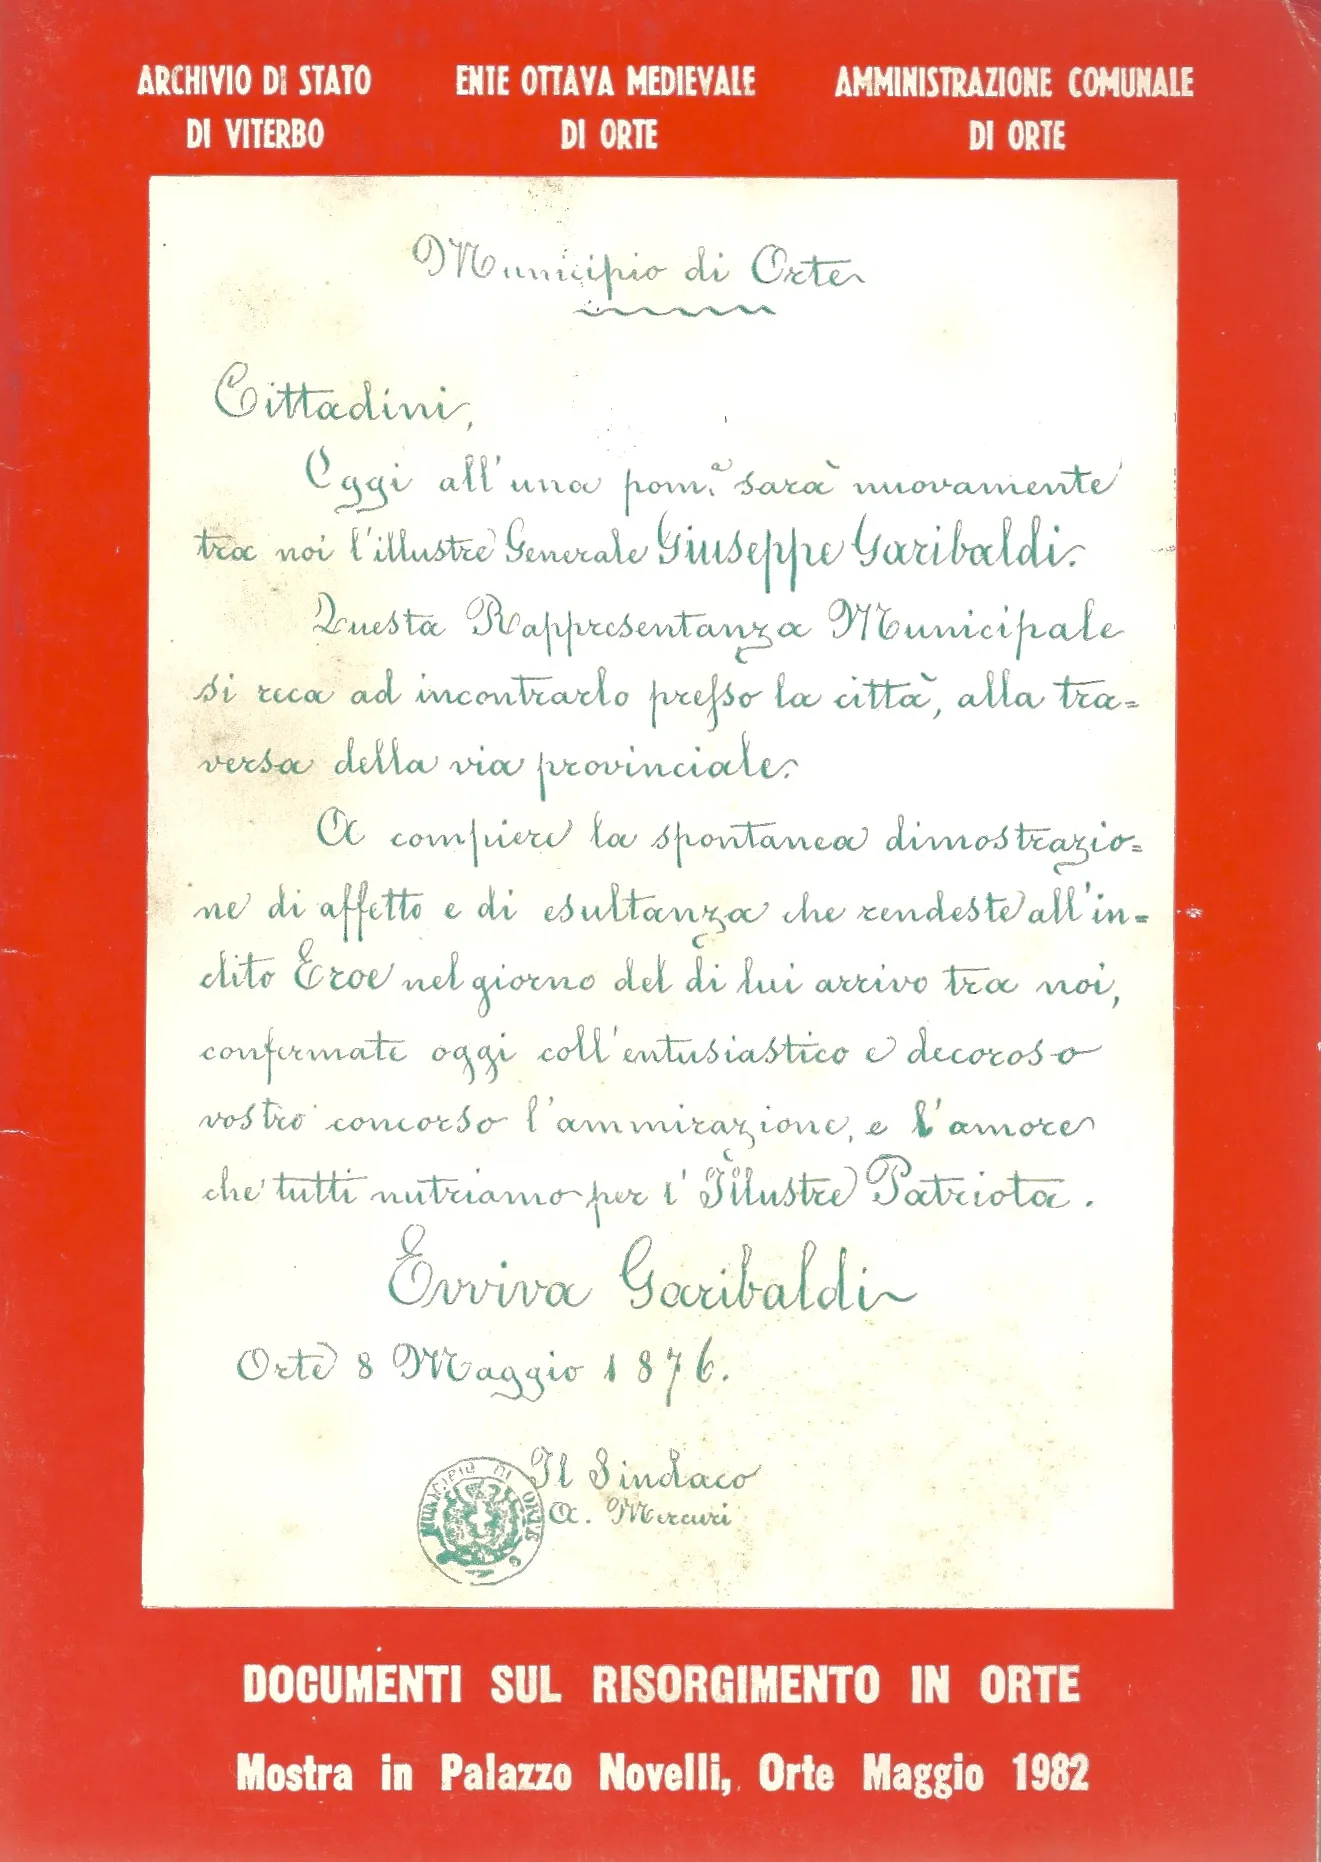 ARCHIVIO DI STATO
DI VITERBO
ENTE OTTAVA MEDIEVALE
DI ORTE
AMMINISTRAZIONE COMUNALE
DI ORTE
Municipio di Orte
Cittadini,
Oggi all'una pom.e sarà nuovamente
tra noi l'illustre Generale Giuseppe Garibaldi.
Questa Rappresentanza Municipale
si reca ad incontrarlo presso la città, alla tra=
versa della via provinciale.
A compiere la spontanea dimostrazio=
ne di affetto e di esultanza che rendeste all'in=
clito Eroe nel giorno del di lui arrivo tra noi,
confermate oggi coll'entusiastico e decoroso
vostro concorso l'ammirazione, e l'amore
che tutti nutriamo per l'Illustre Patriota.
Evviva Garibaldi
Orte 8 Maggio 1876.
Il Sindaco
A. Mercuri
MUNICIPIO DI ORTE
DOCUMENTI SUL RISORGIMENTO IN ORTE
Mostra in Palazzo Novelli, Orte Maggio 1982